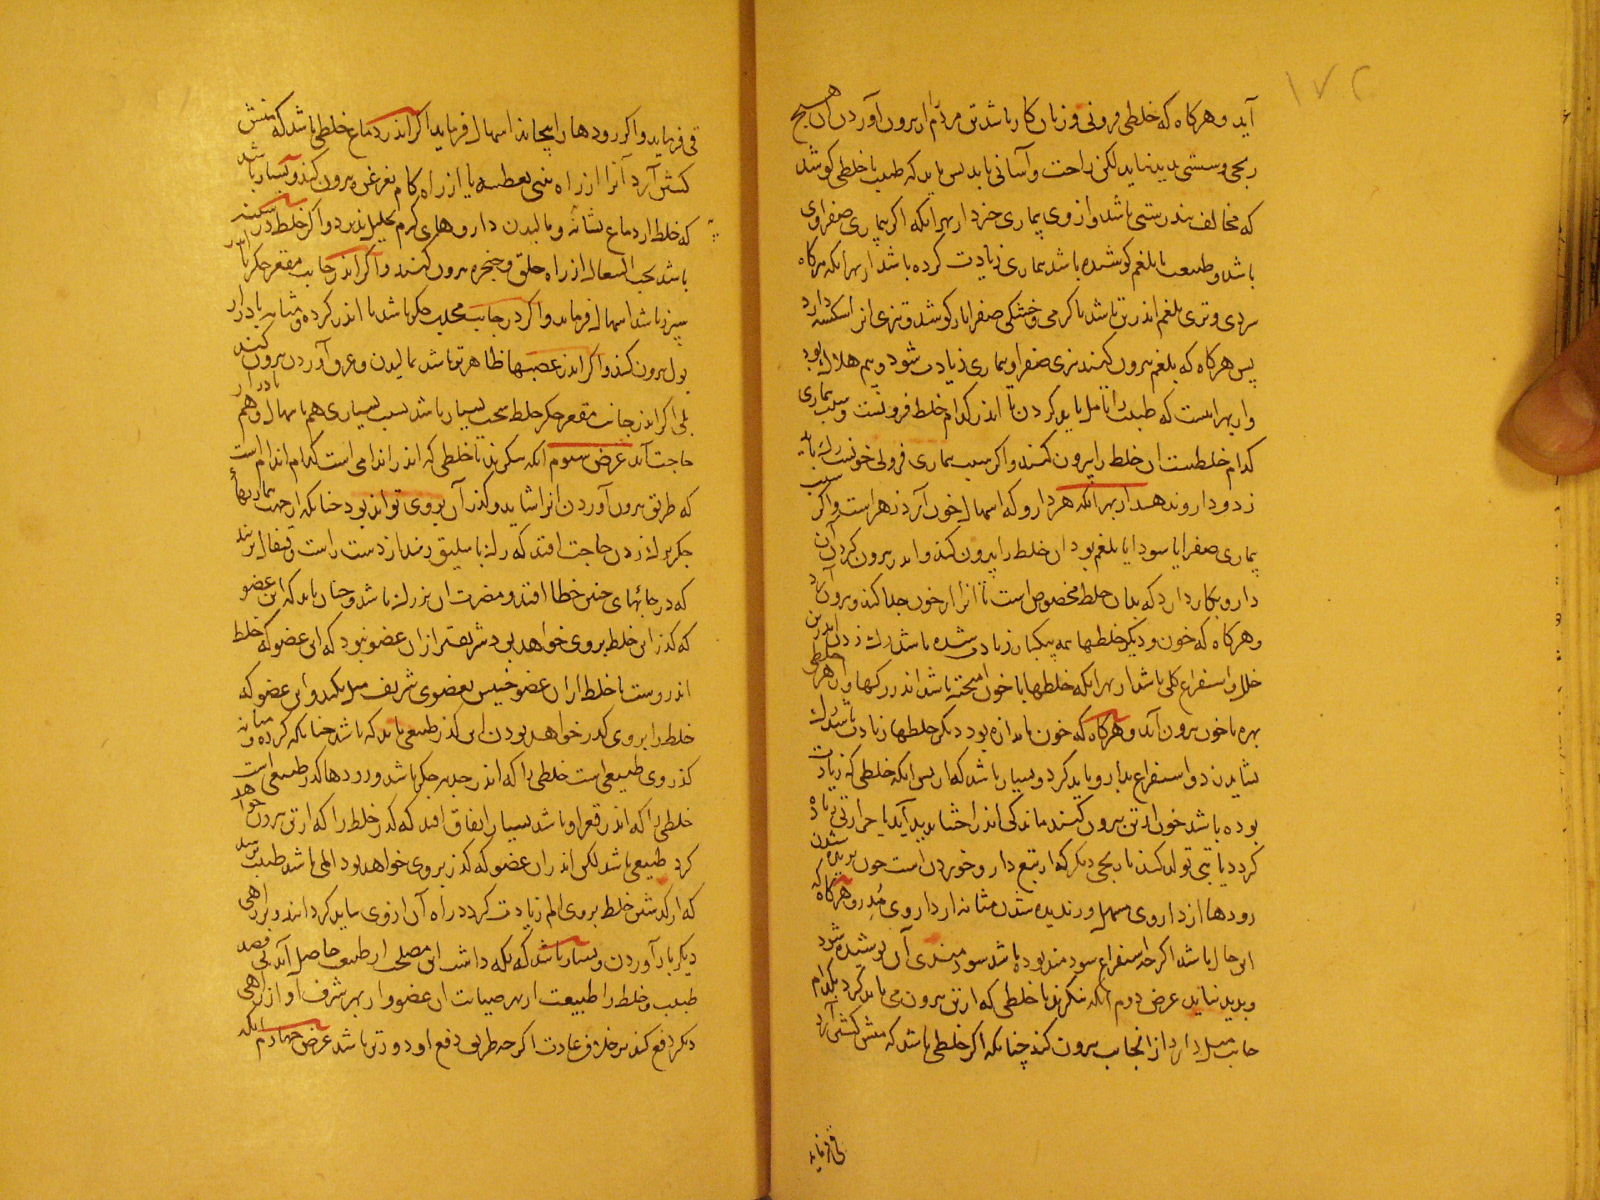 ۱۷۲
آید و هرکاه که خلطی فرونی و زیان کار باشد تن مردم از بیرون آوردن آن هیچ
رنجی و سستی پدید نیاید لکن راحت و آسانی یابد پس باید که طبیب با خلطی کوشد
که مخالف تندرستی باشد و از وی بیماری خیزد از بهر انکه اکر بیماری صفراوی
باشد و طبیب با بلغم کوشیده باشد بیماری زیادت کرده باشد از بهر انکه هرکاه
سردی و تری بلغم اندر تن باشد با کرمی و خشکی صفرا باز کوشد و تیزی انرا شکسته دارد
پس هرکاه که بلغم بیرون کنند تیزی صفرا و بیماری زیادت شود و بیم هلاک بود
و از بهر اینست که طبیب را تامل باید کردن تا اندر تن کدام خلط فرونست و سبب بیماری
کدام خلطست ان خلط را بیرون کنند و اکر سبب بیماری فرونی خونست رک باید
زد و دارو ندهند از بهر انکه هر دارو که اسهال خون آرد زهر است و اکر سبب
بیماری صفرا یا سودا یا بلغم بود ان خلط را بیرون کنند و اندر بیرون کردن آن
دارو بکار دارد که بدان خلط مخصوص است تا انرا از خون جدا کند و بیرون آرد
و هرکاه که خون و دیکر خلطها همه بیکبار زیادت شده باشد رک زدن اندرین
حال استفراغ کلی باشد از بهر انکه خلطها با خون امیخته باشد اندر رکها و از هر خلطی
بهره با خون بیرون آید و هرکاه که خون باندازه بود و دیکر خلطها زیادت باشد رک
نشاید زد و استفراغ بدارو باید کرد و بسیار باشد که از پس انکه خلطی که زیادت
بوده باشد خون از تن بیرون کنند ماندکی اندر احشا پدید آید یا حرارتی زیاده
کردد یا تبی تولد کند یا رنجی دیکر که از تبع دارو خوردن است چون بریده شدن
رودها از داروی مسهل و رندیده شدن مثانه از داروی مدر و هرکاه که
این حال باشد اکرچه استفراغ سودمند بوده باشد سودمندی آن پوشیده شود
و پدید نیاید غرض دوم آنکه بنکرند تا خلطی که از تن بیرون می باید کرد بکدام
جانب میل دارد از انجانب بیرون کنند چنانکه اکر خلطی باشد که منش کشتن آرد
قی فرماید
قی فرماید و اکر رودها را پیچاند اسهال فرماید اکر اندر دماغ خلطی باشد که منش
کشتن آرد آنرا از راه بینی بعطسه یا از راه کام بغرغره بیرون کند و بسیار باشد
که خلط از دماغ بشانه و مالیدن داروهای کرم تحلیل پذیرد و اکر خلط در سینه
باشد بحب السعال از راه حلق و حنجره بیرون کنند و اکر اندر جانب مقعر جکر یا اندر
سپرز باشد اسهال فرماید و اکر در جانب محدب جکر باشد یا اندر کرده و مثانه بادرار
بول بیرون کند و اکر اندر عصبها ظاهر تن باشد بمالیدن و عرق آوردن بیرون کند
بلی اکر اندر جانب مقعر جکر خلط سخت بسیار باشد بسبب بسیاری هم باسهال و هم بادرار
حاجت آید غرض سیوم آنکه بنکرند تا خلطی که اندر اندامی است کدام اندام است
که طریق بیرون آوردن انرا شاید و کذر آن بروی تواند بود چنانکه از جهت بیماریهاء
جکر برک زدن حاجت افتد که رک باسلیق زنند از دست راست و قیفال نزنند
که در جائهای چنین خطا افتد و مضرت ان بزرک باشد و چنان باید که این عضو
که کذر این خلط بروی خواهد بود شریفتر از ان عضو نبود که این عضو که خلط
اندر وست تا خلط از ان عضو خسیس بعضوی شریف میل نکند و این عضو که
خلط را بروی کذر خواهد بودن این کذر طبیعی باید که باشد چنانکه کرده و مثانه
کذر وی طبیعی است خلطی را که اندر حدبه جکر باشد و رودها کذر طبیعی است
خلطی را که اندر قعر او باشد بسیار اتفاق افتد که کذر خلط را که از تن بیرون خواهد
کرد طبیعی باشد لکن اندر ان عضو که کذر بروی خواهد بود المی باشد طبیب ترسد
که از کذشتن خلط بروی الم زیادت کردد راه آن از وی بباید کردانید و براهی
دیکر باز آوردن و بسیار باشد که نکه داشت این مصلحت از طبیعت حاصل آید بی قصد
طبیب و خلط را طبیعت از بهر صیانت ان عضو و از بهر شرف او از راهی
دیکر دفع کند بر خلاف عادت اکرچه طریق دفع او دورتر باشد غرض چهارم انکه